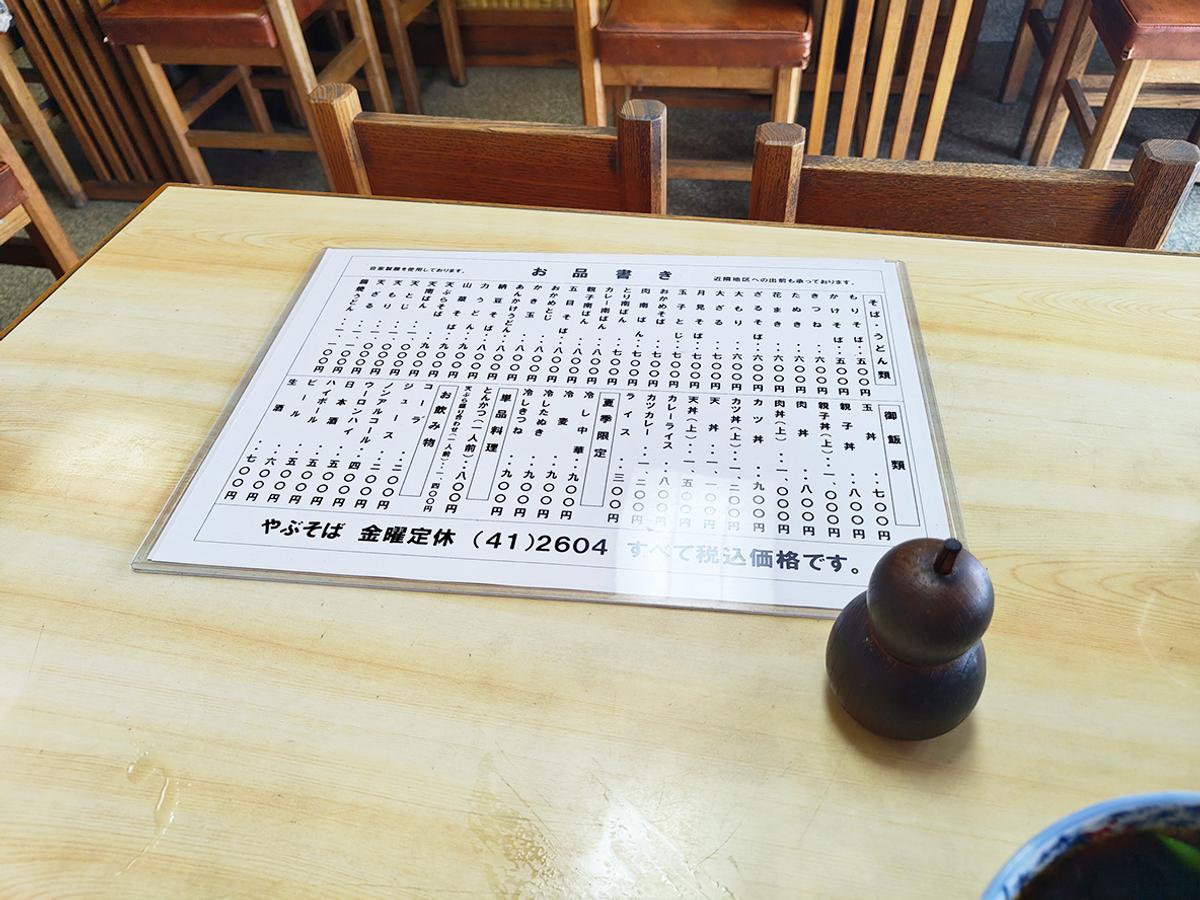 自家製麺を使用しております。
お品書き
近隣地区への出前も承っております。
そば・うどん類
もりそば・・五〇〇円
かけそば・・五〇〇円
きつね・・六〇〇円
たぬき・・六〇〇円
花まき・・六〇〇円
ざるそば・・六〇〇円
大もり・・六〇〇円
大ざる・・七〇〇円
月見そば・・七〇〇円
玉子とじ・・七〇〇円
おかめそば・七〇〇円
肉南ばん・七〇〇円
とり南ばん・七〇〇円
カレー南ばん
親子南ばん・八〇〇円
五目そば・・八〇〇円
おかめとじ・八〇〇円
かき玉・・八〇〇円
あんかけうどん・八〇〇円
納豆そば・・八〇〇円
力うどん・・八〇〇円
山菜そば・・九〇〇円
天ぷらそば・九〇〇円
天南ばん
天とじ
天もり
天ざる
鍋焼うどん
御飯類
玉丼・・七〇〇円
親子丼・・八〇〇円
親子丼(上)・一、〇〇〇円
肉丼・・八〇〇円
肉丼(上)・一、〇〇〇円
カツ丼・・九〇〇円
カツ丼(上)・一、二〇〇円
天丼・・一、一〇〇円
天丼(上)・一、五〇〇円
カレーライス・・八〇〇円
カツカレー・・一、二〇〇円
ライス・・三〇〇円
夏季限定
冷し中華・九〇〇円
冷麦・・八〇〇円
冷したぬき・九〇〇円
冷しきつね・九〇〇円
単品料理
とんかつ(一人前)・八〇〇円
天ぷら盛り合わせ(一人前)・一、四〇〇円
お飲み物
コーラ・・二〇〇円
ジュース・・二〇〇円
ノンアルコール・四〇〇円
ウーロンハイ・五〇〇円
日本酒・五〇〇円
ハイボール・五〇〇円
ビール・・六〇〇円
生酒・・七〇〇円
やぶそば 金曜定休 (41)2604 すべて税込価格です。